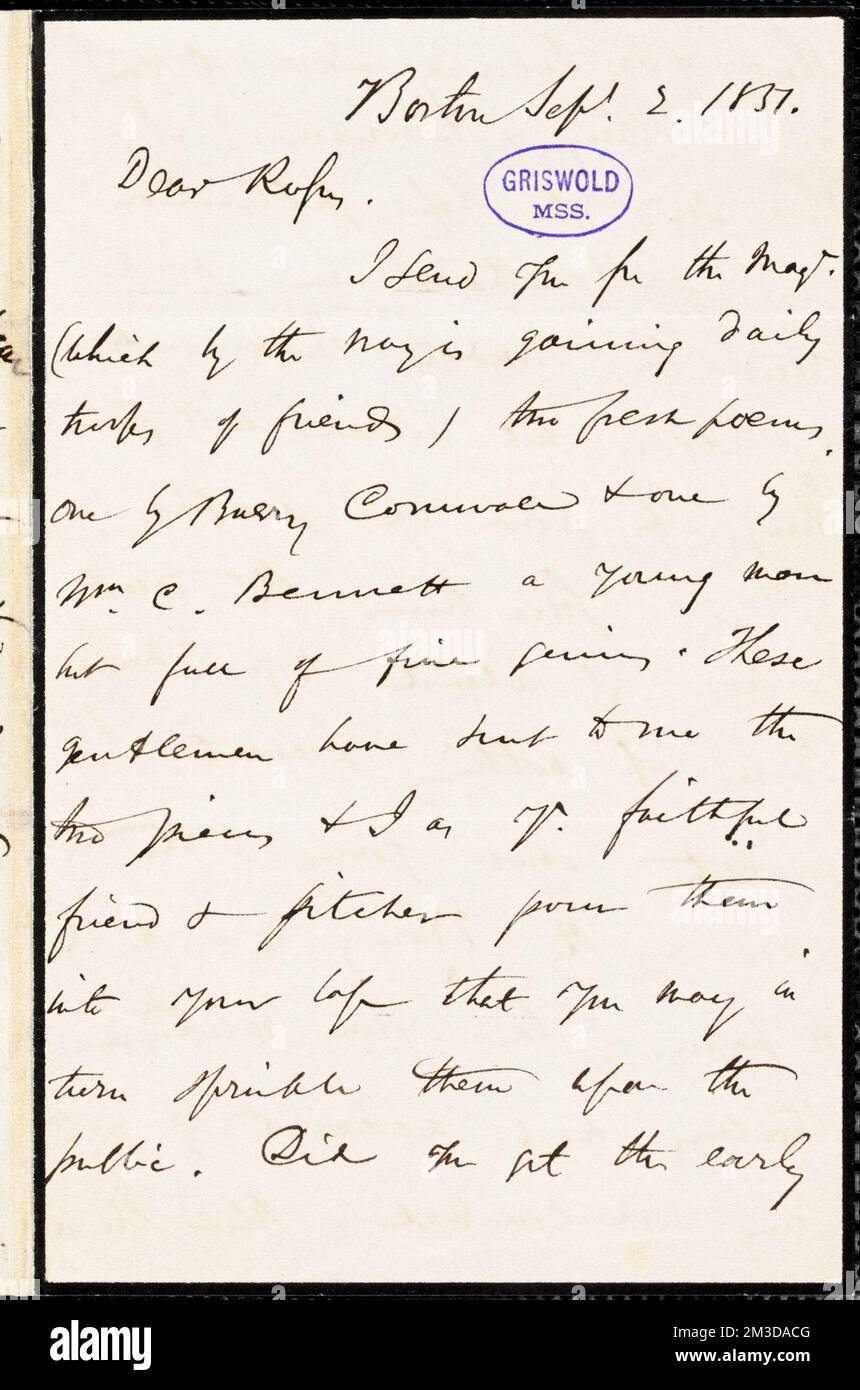 Boston Sept. 2. 1851.
Dear Rufus.
GRISWOLD
MSS.
I send you for the Magr.
(which by the way is gaining daily
troops of friends) two fresh poems,
one by Barry Cornwall & one by
Wm. C. Bennett a young man
but full of fine genius. These
gentlemen have sent to me the
two pieces & I as yr. faithful
friend & pitcher pour them
into your lap that you may in
turn sprinkle them upon the
public. Did you get the early
alamy
Image ID: 2M3DACG
www.alamy.com